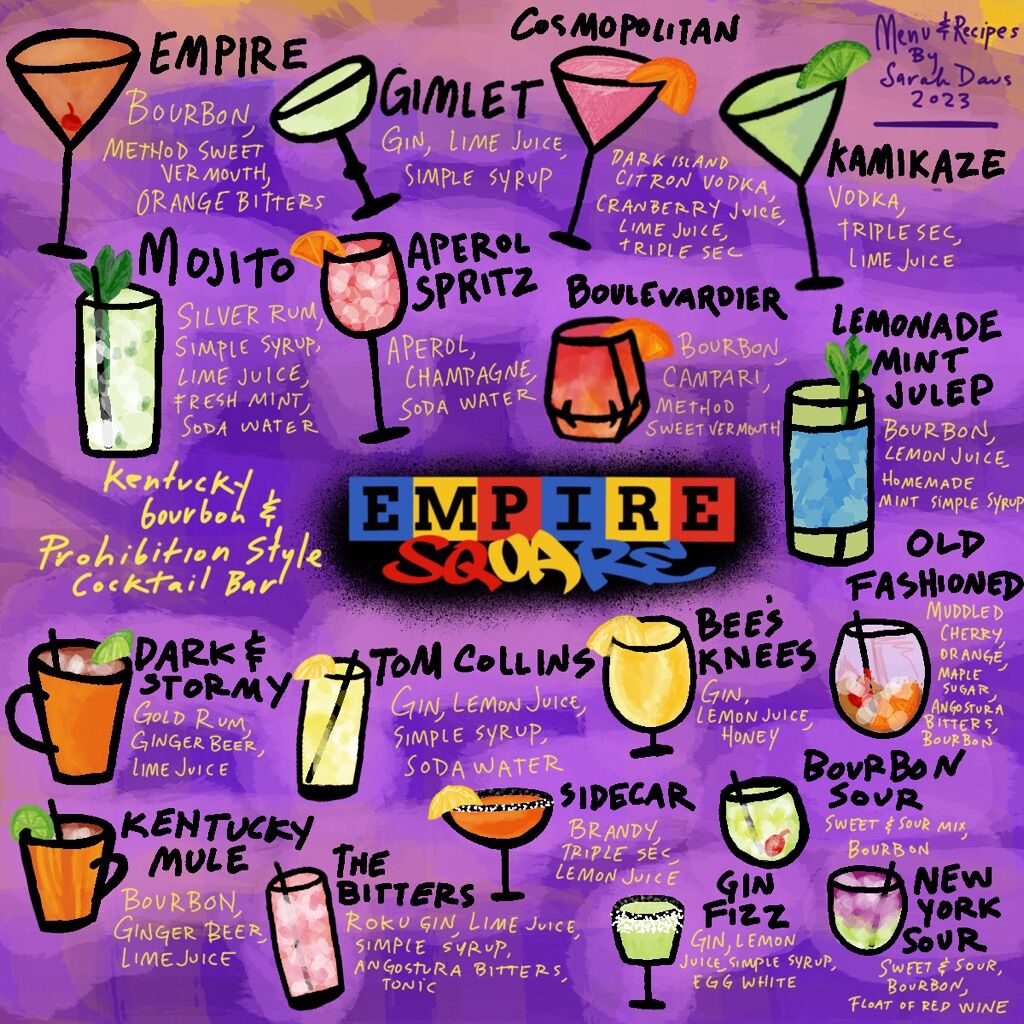 EMPIRE
BOURBON,
METHOD SWEET
VERMOUTH,
ORANGE BITTERS
GIMLET
GIN, LIME JUICE,
SIMPLE SYRUP
COSMOPOLITAN
DARK ISLAND
CITRON VODKA,
CRANBERRY JUICE,
LIME JUICE,
TRIPLE SEC
Menu & Recipes
By
Sarah Daws
2023
KAMIKAZE
VODKA,
TRIPLE SEC,
LIME JUICE
MOJITO
SILVER RUM,
SIMPLE SYRUP,
LIME JUICE,
FRESH MINT,
SODA WATER
APEROL
SPRITZ
APEROL,
CHAMPAGNE,
SODA WATER
BOULEVARDIER
BOURBON,
CAMPARI,
METHOD
SWEET VERMOUTH
LEMONADE
MINT
JULEP
BOURBON,
LEMON JUICE,
HOMEMADE
MINT SIMPLE SYRUP
Kentucky
bourbon &
Prohibition Style
Cocktail Bar
EMPIRE
SQUARE
OLD
FASHIONED
MUDDLED
CHERRY,
ORANGE,
MAPLE
SUGAR,
ANGOSTURA
BITTERS,
BOURBON
DARK &
STORMY
GOLD RUM,
GINGER BEER,
LIME JUICE
TOM COLLINS
GIN, LEMON JUICE,
SIMPLE SYRUP,
SODA WATER
BEE'S
KNEES
GIN,
LEMON JUICE,
HONEY
KENTUCKY
MULE
BOURBON,
GINGER BEER,
LIME JUICE
THE
BITTERS
ROKU GIN, LIME JUICE,
SIMPLE SYRUP,
ANGOSTURA BITTERS,
TONIC
SIDECAR
BRANDY,
TRIPLE SEC,
LEMON JUICE
BOURBON
SOUR
SWEET & SOUR MIX,
BOURBON
GIN
FIZZ
GIN, LEMON
JUICE, SIMPLE SYRUP,
EGG WHITE
NEW
YORK
SOUR
SWEET & SOUR,
BOURBON,
FLOAT OF RED WINE